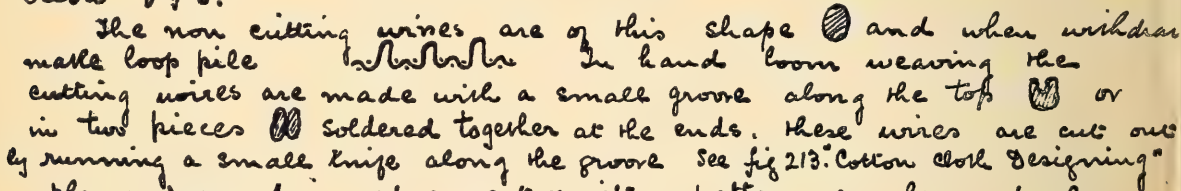 The non cutting wires are of this shape and when withdraw
make loop pile In hand loom weaving the
cutting wires are made with a small groove along the top or
in two pieces soldered together at the ends. These wires are cut out
by running a small knife along the groove See fig 213. "Cotton Cloth Designing"